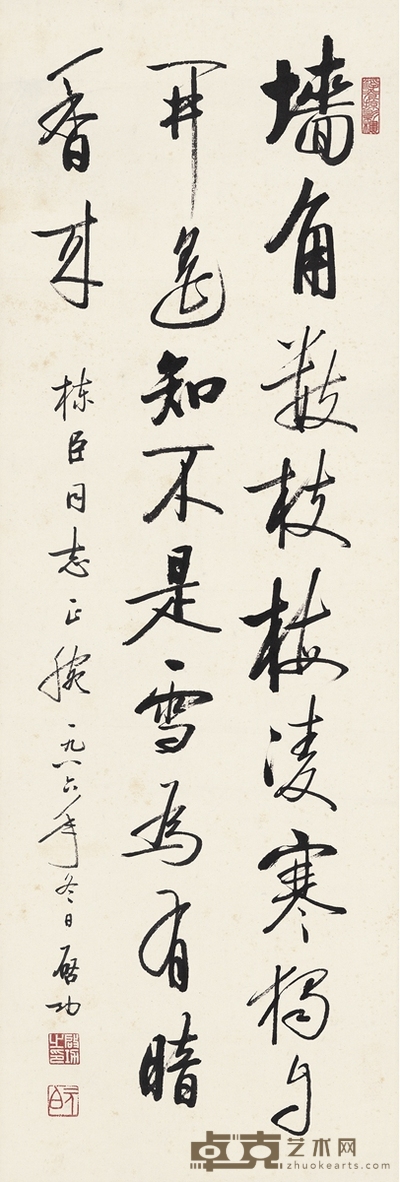 墙角数枝梅凌寒獨自
開遥知不是雪為有暗
香来
栋臣同志正腕 一九八六年冬日 启功
启功之印
元白
卓克艺术网
zhuokearts.com